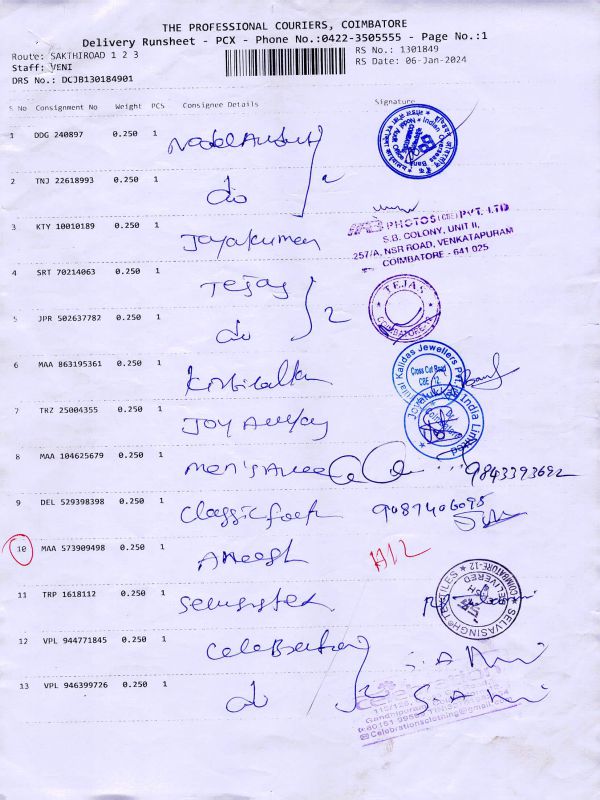 THE PROFESSIONAL COURIERS, COIMBATORE
Delivery Runsheet - PCX - Phone No.:0422-3505555 - Page No.:1
Route: SAKTHIROAD 1 2 3
RS No.: 1301849
Staff: VENI
RS Date: 06-Jan-2024
DRS No.: DCJB130184901
S No Consignment No Weight PCS Consignee Details Signature
1 DDG 240897 0.250 1
2 TNJ 22618993 0.250 1 do 2
3 KTY 10010189 0.250 1 Jayakumar
PHOTOS (CBE) PVT. LTD
S.B. COLONY, UNIT II,
257/A, NSR ROAD, VENKATAPURAM
COIMBATORE - 641 025
4 SRT 70214063 0.250 1 Tejas
TEJAS
COIMBATORE-12
5 JPR 502637782 0.250 1 do 2
6 MAA 863195361 0.250 1
Kalidas Jewellers Pvt.
Cross Cut Road
CBE 12.
7 TRZ 25004355 0.250 1
India Limited
8 MAA 104625679 0.250 1 9843393692
9 DEL 529398398 0.250 1 9087406095
10 MAA 573909498 0.250 1 Aneesh
11 TRP 1618112 0.250 1
SELVASINGH TEXTILES
COIMBATORE-12
DELIVERED
12 VPL 944771845 0.250 1 Celebration S.A
13 VPL 946399726 0.250 1 do 2 S.A
Celebrationsclothing@gmail.com